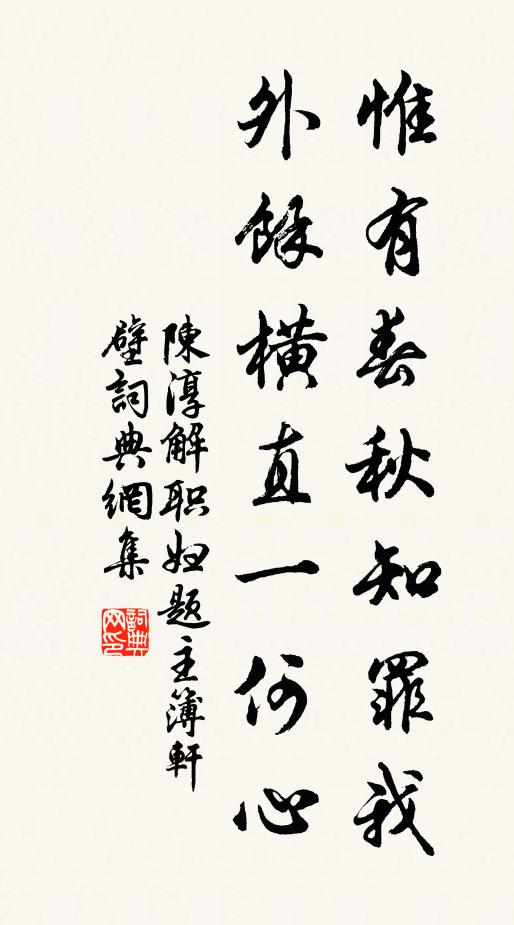 惟有春秋知罪我
外餘橫直一何心
陳淳解职如題主簿軒
壁詞典網集
詞典网印